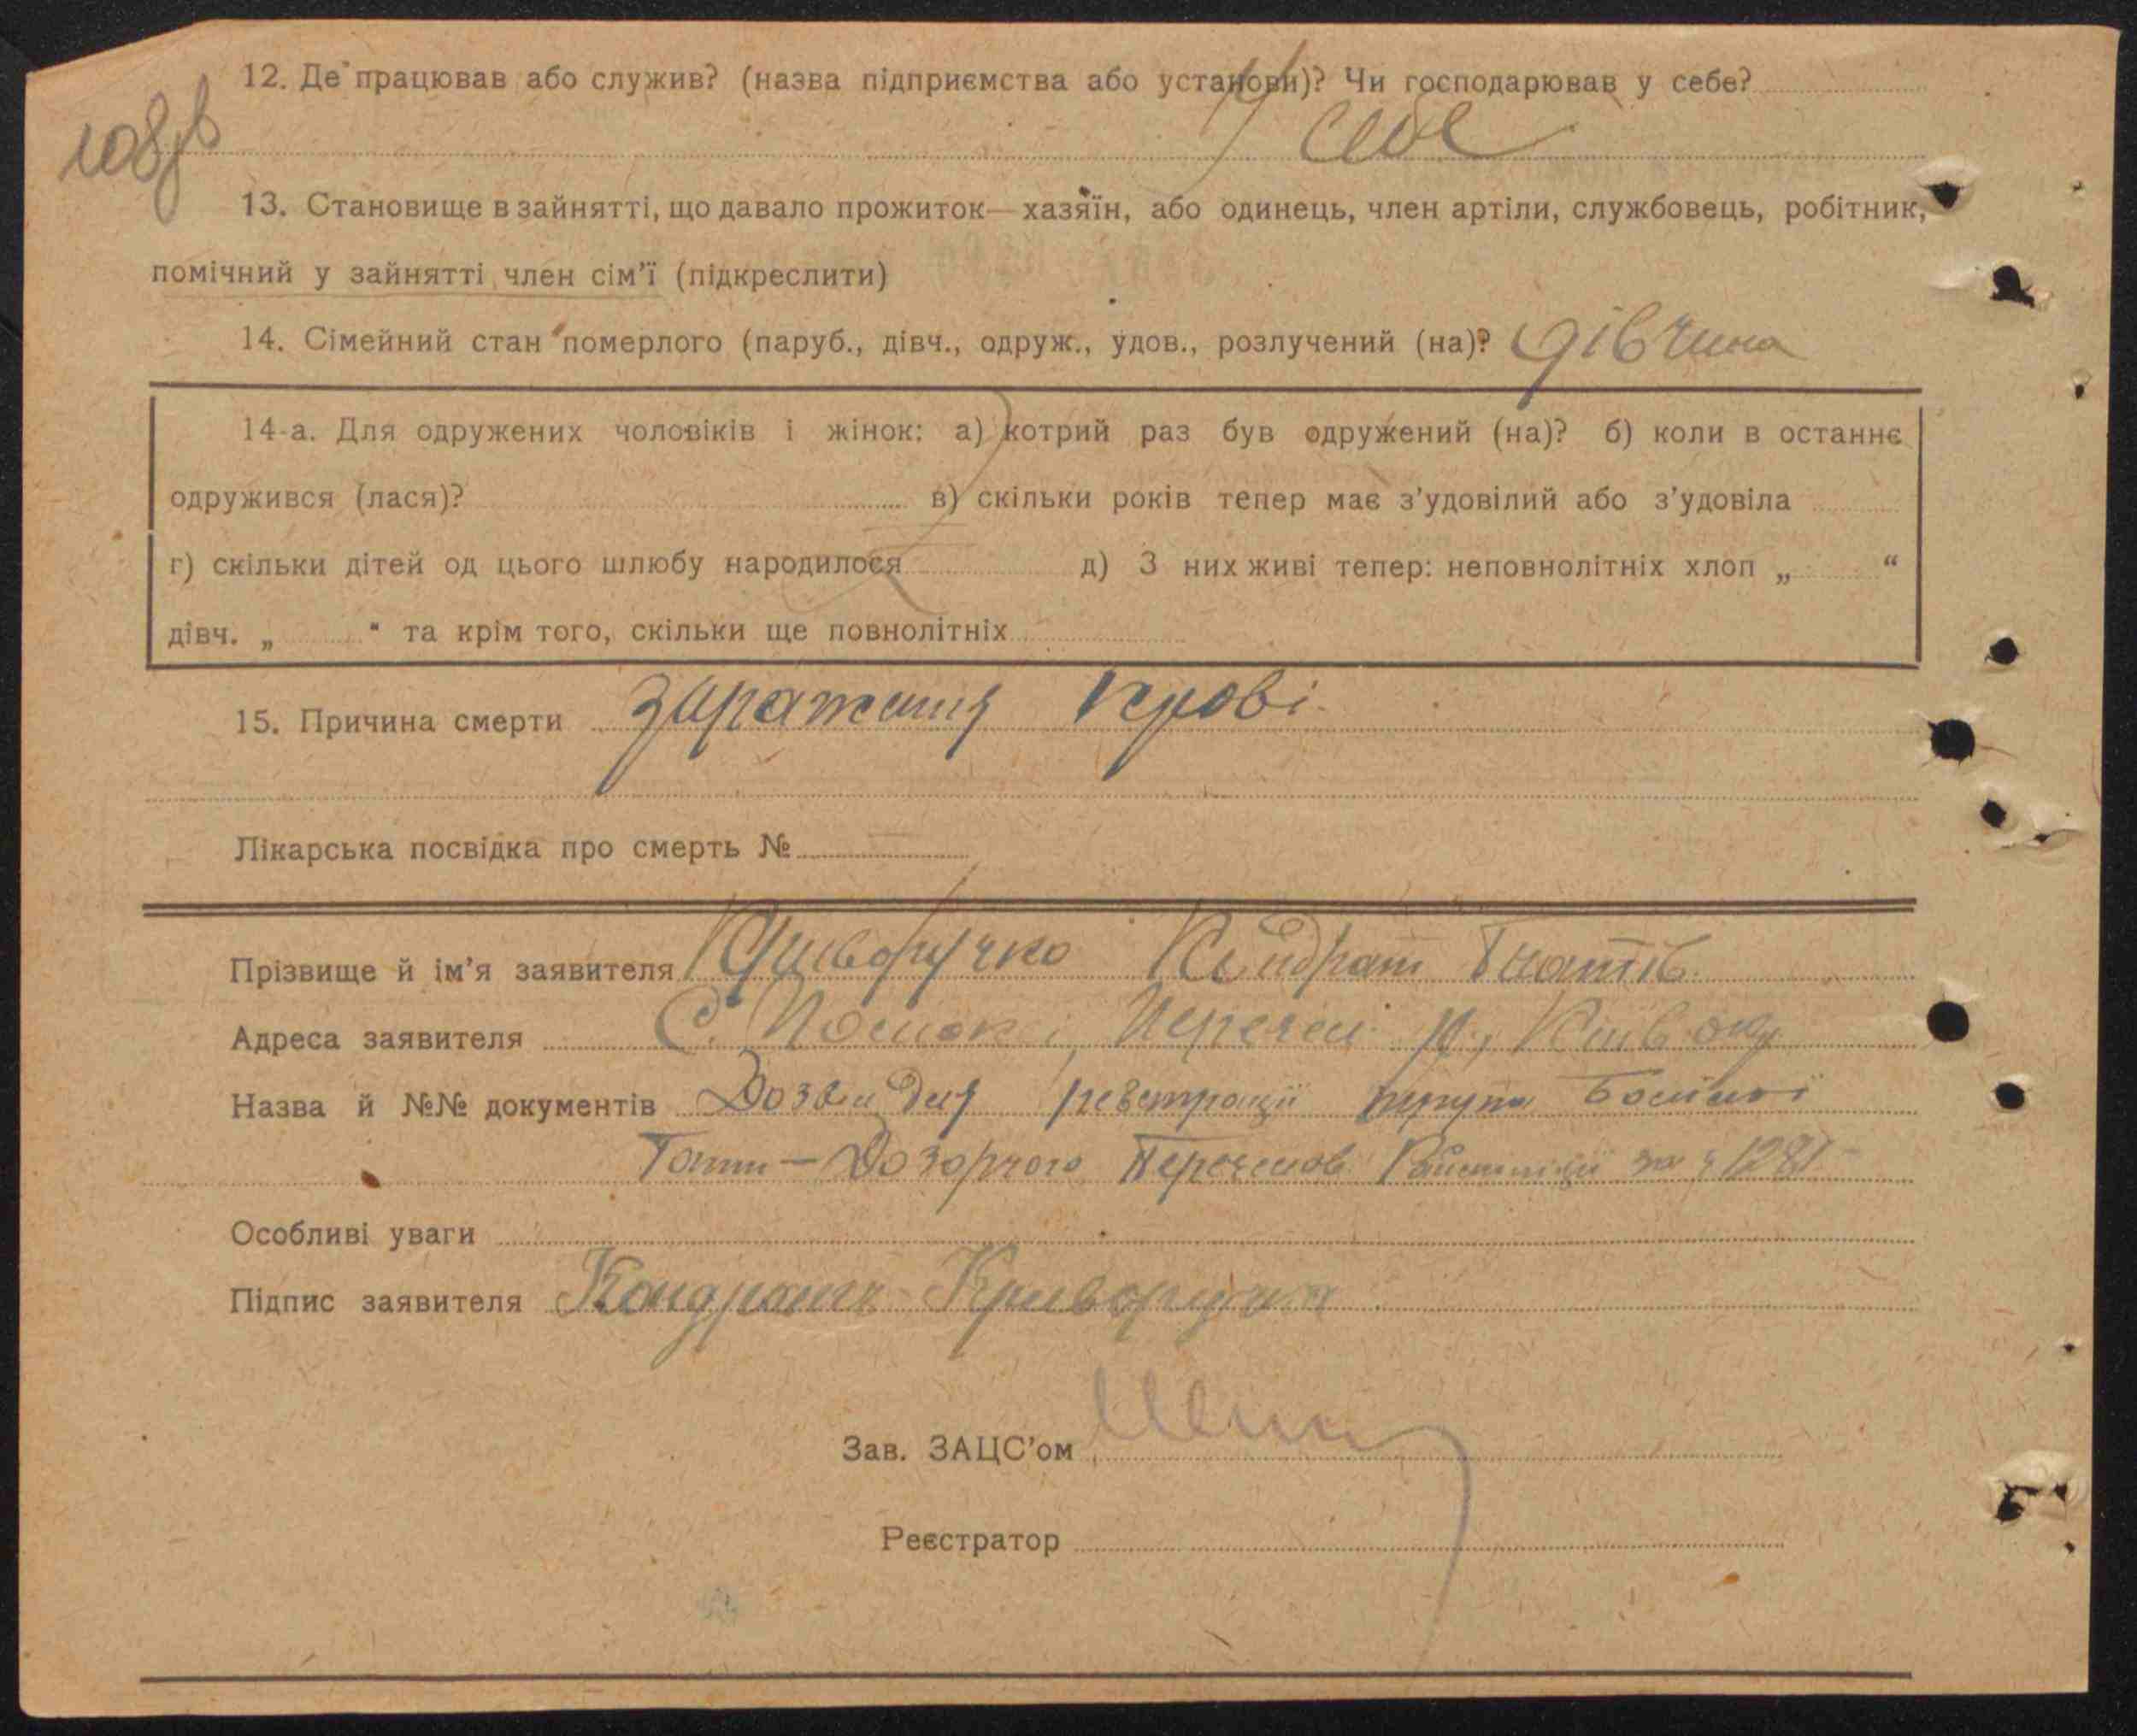 108зв
12. Де працював або служив? (назва підприємства або установи)? Чи господарював у себе?
У себе
13. Становище в зайнятті, що давало прожиток — хазяїн, або одинець, член артіли, службовець, робітник,
помічний у зайнятті член сім'ї (підкреслити)
14. Сімейний стан померлого (паруб., дівч., одруж., удов., розлучений (на)? дівчина
14-а. Для одружених чоловіків і жінок: а) котрий раз був одружений (на)? б) коли в останнє
одружився (лася)? в) скільки років тепер має з'удовілий або з'удовіла
г) скільки дітей од цього шлюбу народилося д) З них живі тепер: неповнолітніх хлоп „ “
дівч. „ “ та крім того, скільки ще повнолітніх
15. Причина смерти зараження крові
Лікарська посвідка про смерть №
Прізвище й ім'я заявителя Криворучко Кіндрат Гнатів
Адреса заявителя С. р., Київ окр
Назва й №№ документів Дозвіл для реєстрації трупа
Дозорчого за ч 1281
Особливі уваги
Підпис заявителя Кондрат Криворучка
Зав. ЗАЦС'ом
Реєстратор